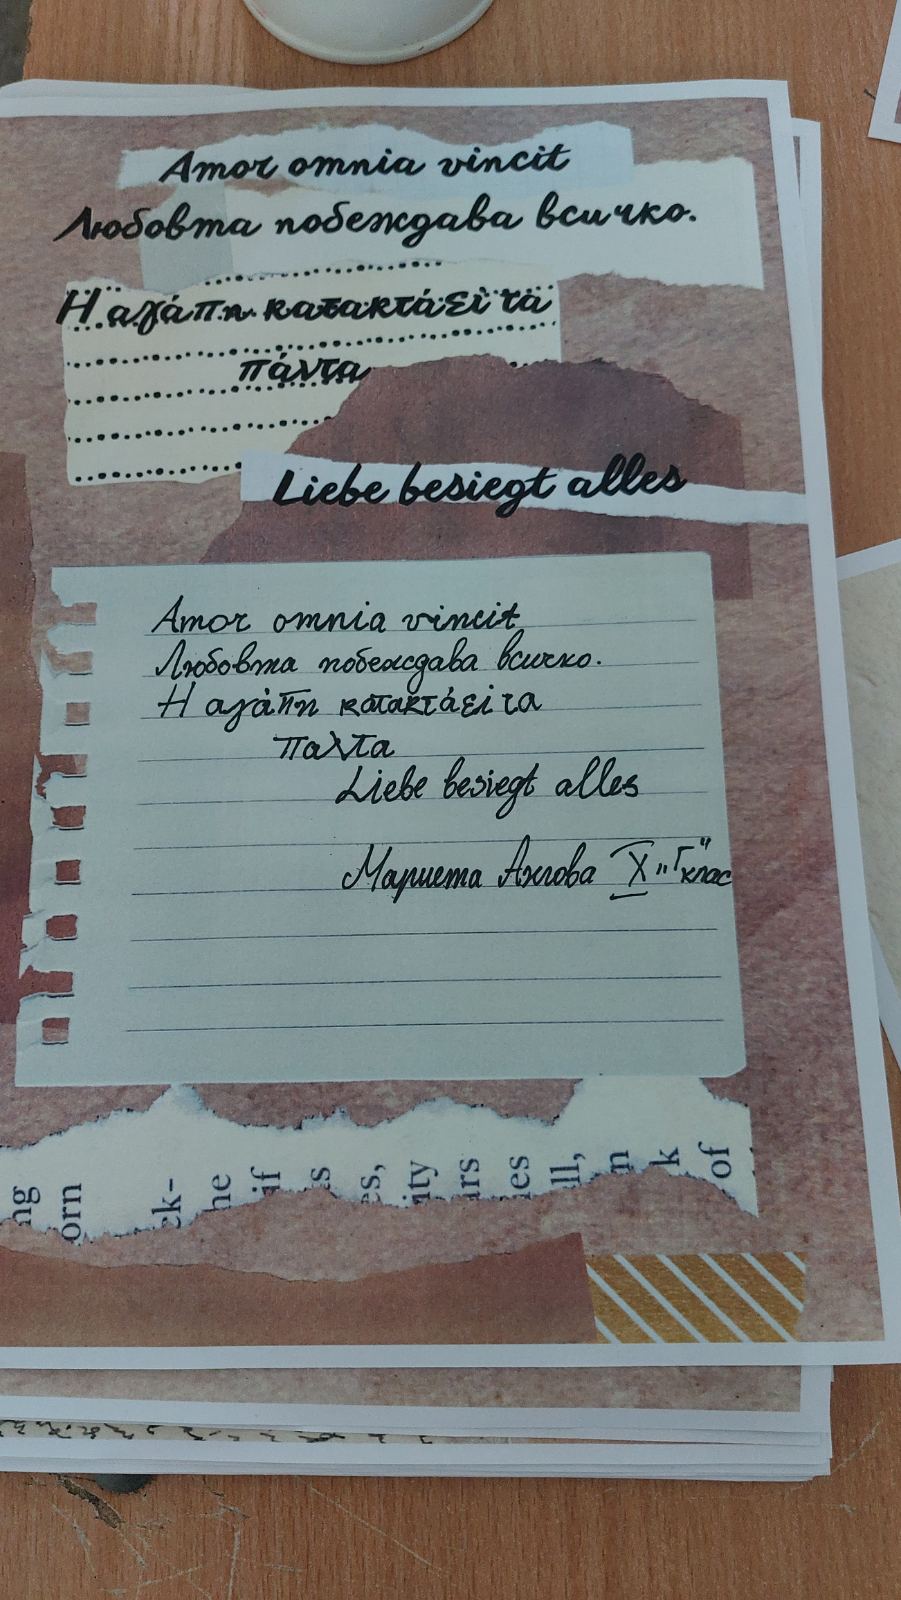 Amor omnia vincit
Любовта побеждава всичко.
Η αγάπη κατακτάει τα
πάντα
Liebe besiegt alles
Amor omnia vincit
Любовта побеждава всичко.
Η αγάπη κατακτάει τα
παντα
Liebe besiegt alles
Мариета Ангова X "Г" клас
ng
orn
ck-
he
if
s
es,
ity
ars
ies
ll,
n
k
of